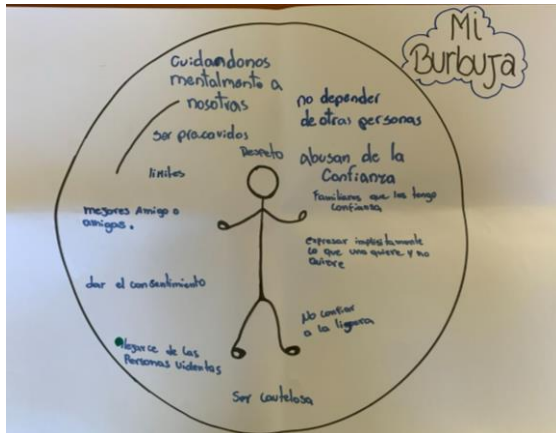 Mi
Burbuja
Cuidandonos
mentalmente a
nosotras
no depender
de otras personas
Ser precavidos
Respeto
abusan de la
Confianza
limites
Familiares que les tengo
confianza
mejores Amigo o
amigas.
expresar implisitamente
lo que uno quiere y no
quiere
dar el consentimiento
No confiar
a la ligera
Alejarce de las
Personas violentas
Ser cautelosa